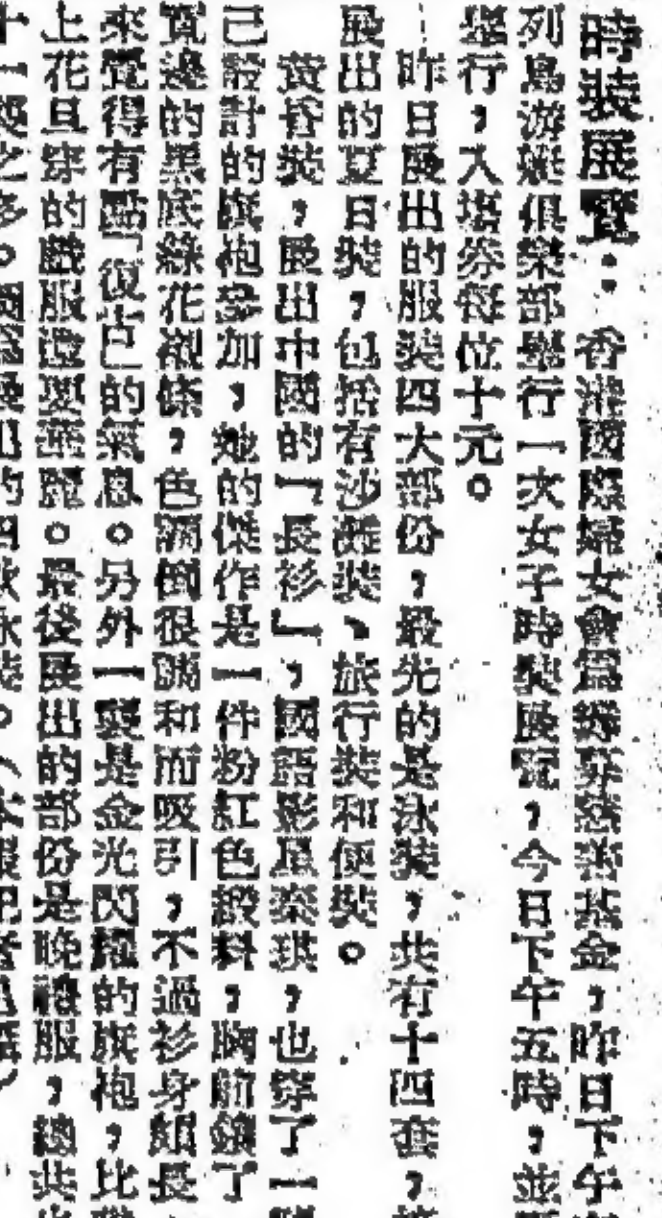 時裝展覽：香港國際婦女會為籌募慈善基金，昨日下午
列島游艇俱樂部舉行一次女子時裝展覽，今日下午五時，並
舉行，入場券每位十元。
昨日展出的服裝四大部份，最先的是泳裝，共有十四套，
展出的夏日裝，包括有沙灘裝、旅行裝和便裝。
黄昏裝，展出中國的「長衫」，國語影星樂琪，也穿了一
己設計的旗袍參加，她的傑作是一件粉紅色緞料，胸前鑲了
寬邊的黑底綠花襯條，色調倒很調和而吸引，不過衫身頗長
來覺得有點「復古」的氣息。另外一襲是金光閃耀的旗袍，比
上花旦穿的戲服還要華麗。最後展出的部份是晚禮服，總共
十一襲之多。